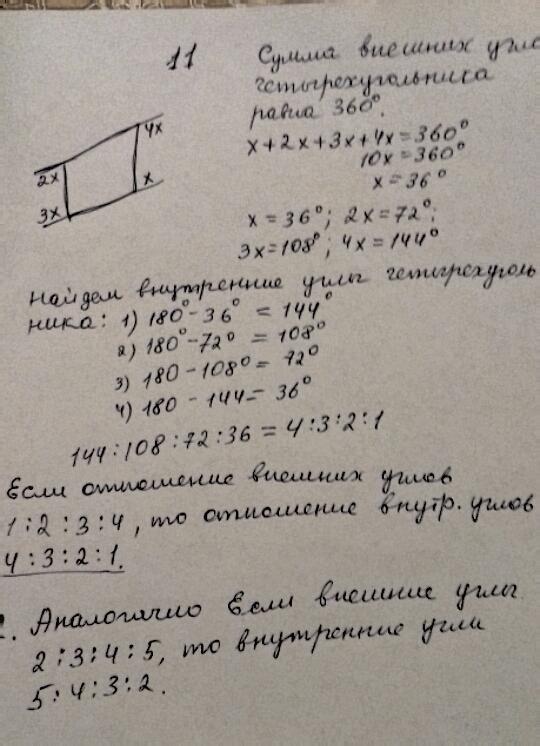 11
Сумма внешних угло
четырехугольника
равна 360°.
x+2x+3x+4x=360°
10x=360°
x=36°
4x
2x
x
3x
x=36°; 2x=72°;
3x=108°; 4x=144°
Найдем внутренние углы четырехуголь
ника: 1) 180°-36° = 144°
2) 180°-72° = 108°
3) 180-108°= 72°
4) 180 - 144= 36°
144:108:72:36 = 4:3:2:1
Если отношение внешних углов
1:2:3:4, то отношение внутр. углов
4:3:2:1.
Аналогично Если внешние углы
2:3:4:5, то внутренние угли
5:4:3:2.